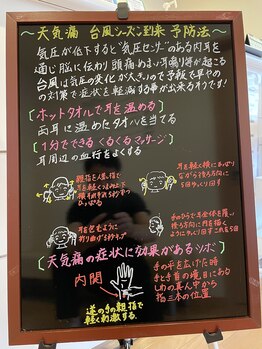 〜天気痛 台風シーズン到来 予防法〜
気圧が低下すると"気圧センサーのある内耳を
通じ脳に伝わり頭痛めまい耳鳴り等が起こる
台風は気圧の変化が大きいので予報で早めの
の対策で症状を軽減する事が出来るそうです!
[ホットタオルで耳を温める]
両耳に温めたタオルを当てる
[1分でできる くるくるマッサージ]
耳周辺の血行をよくする
親指を人差指で
耳を軽くつまみ上下
横それぞれ5秒ずつ
ひっぱる
耳を軽く横にひっぱり
ながら後ろ方向に
5回ゆっくり回す
耳を包むように
折り曲げ5秒キープ
手のひらで耳全体を覆い
後ろ方向に円を描く
ようにゆっくり回すこれを5回
[天気痛の症状に効果があるツボ]
内関
逆の手の親指で
軽く刺激する。
手の平を広げた時
手と手首の境目にある
しわの真ん中から
指三本の位置